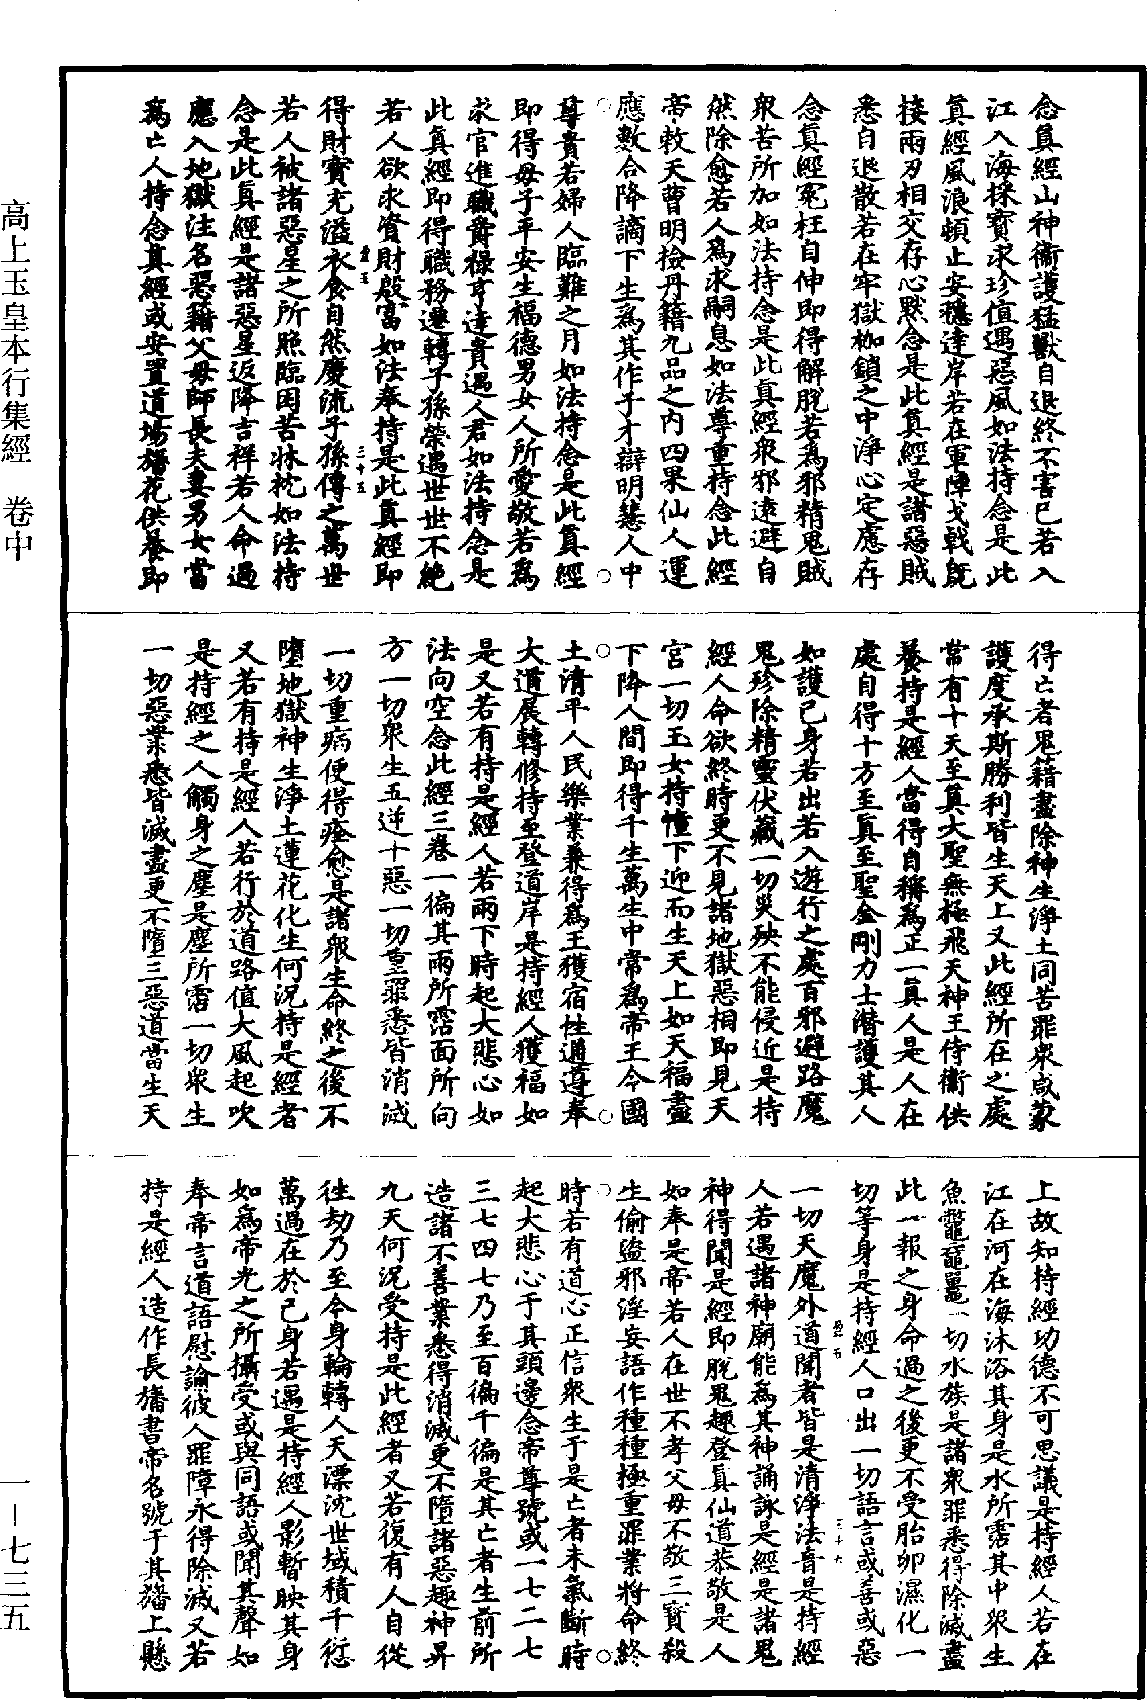 念真經山神衞護猛獸自退終不害已若入
江入海採寶求珍值遇惡風如法持念是此
真經風浪頓止安穩達岸若在軍陣戈戟既
接兩刃相交存心默念是此真經是諸惡賊
悉自退散若在牢獄枷鎖之中淨心定慮存
念真經冤枉自伸即得解脫若爲邪精鬼賊
衆苦所加如法持念是此真經衆邪遠避自
然除愈若人爲求嗣息如法尊重持念此經
帝敕天曹明檢丹籍九品之內四果仙人運
應數合降謫下生爲其作子才辯明慧人中
尊貴若婦人臨難之月如法持念是此真經
即得母子平安生福德男女人所愛敬若爲
求官進職爵祿亨達貴遇人君如法持念是
此真經即得職務遷轉子孫榮遇世世不絕
若人欲求資財殷富如法奉持是此真經即
得財寶充溢衣食自然慶流子孫傳之萬世
若人被諸惡星之所照臨困苦牀枕如法持
念是此真經是諸惡星返降吉祥若人命過
應入地獄注名惡籍父母師長夫妻男女當
爲亡人持念真經或安置道場旛花供養即
得亡者鬼籍盡除神生淨土同苦罪衆咸蒙
護度承斯勝利皆生天上又此經所在之處
常有十天至真大聖無極飛天神王侍衞供
養持是經人當得自稱爲正一真人是人在
處自得十方至真至聖金剛力士潛護其人
如護已身若出若入遊行之處百邪避路魔
鬼殄除精靈伏藏一切災殃不能侵近是持
經人命欲終時更不見諸地獄惡相即見天
宮一切玉女持幢下迎而生天上如天福盡
下降人間即得千生萬生中常爲帝王令國
土清平人民樂業兼得爲王獲宿性通遵奉
大道展轉修持至登道岸是持經人獲福如
是又若有持是經人若雨下時起大悲心如
法向空念此經三卷一徧其雨所霑面所向
方一切衆生五逆十惡一切重罪悉皆消滅
一切重病便得痊愈是諸衆生命終之後不
墮地獄神生淨土蓮花化生何況持是經者
又若有持是經人若行於道路值大風起吹
是持經之人觸身之塵是塵所霑一切衆生
一切惡業悉皆滅盡更不墮三惡道當生天
上故知持經功德不可思議是持經人若在
江在河在海沐浴其身是水所霑其中衆生
魚鼈黿鼉一切水族是諸衆罪悉得除滅盡
此一報之身命過之後更不受胎卵濕化一
切等身是持經人口出一切語言或善或惡
一切天魔外道聞者皆是清淨法音是持經
人若遇諸神廟能爲其神誦詠是經是諸鬼
神得聞是經即脫鬼趣登真仙道恭敬是人
如奉是帝若人在世不孝父母不敬三寶殺
生偷盜邪淫妄語作種種極重罪業將命終
時若有道心正信衆生于是亡者未氣斷時
起大悲心于其頭邊念帝尊號或一七二七
三七四七乃至百徧千徧是其亡者生前所
造諸不善業悉得消滅更不墮諸惡趣神昇
九天何況受持是此經者又若復有人自從
往劫乃至今身輪轉人天漂沈世域積千愆
萬過在於已身若遇是持經人影暫映其身
如爲帝光之所攝受或與同語或聞其聲如
奉帝言道語慰諭彼人罪障永得除滅又若
持是經人造作長旛書帝名號于其旛上懸
高上玉皇本行集經　卷中
一－七三五